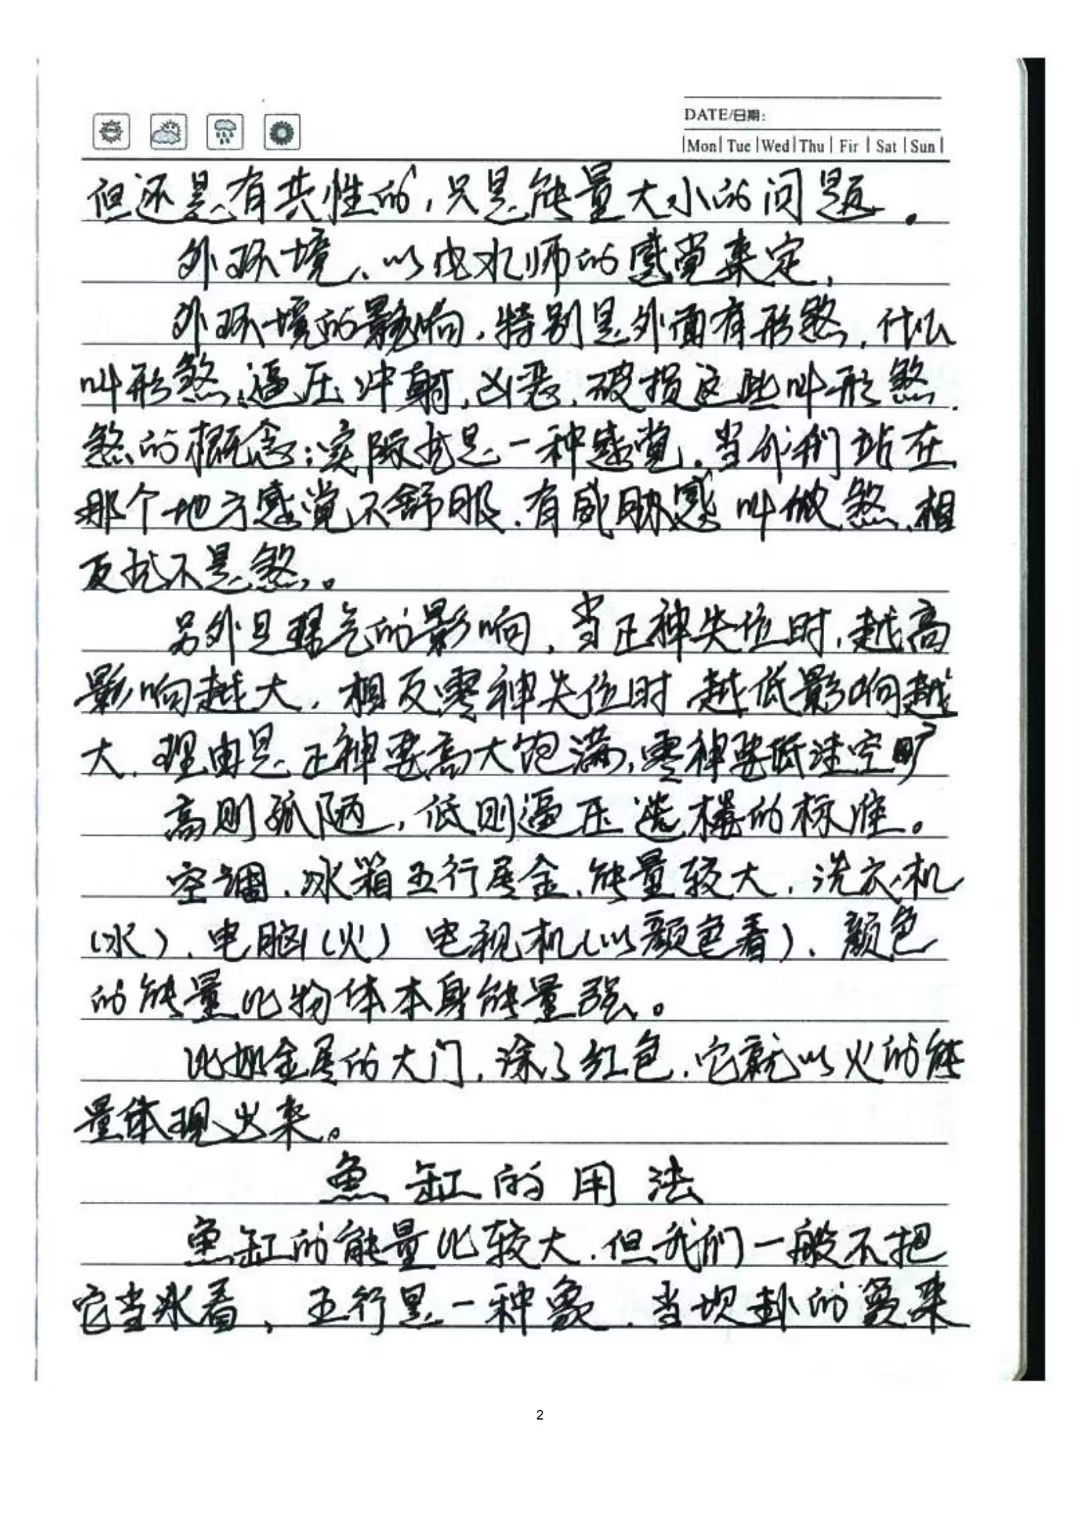 DATE/日期:
Mon Tue Wed Thu Fir Sat Sun
但还是有共性的,只是能量大小的问题。
外环境、以风水师的感觉来定,
外环境的影响,特别是外面有形煞,什么
叫形煞,逼压冲射,凶恶,破损这些叫形煞,
煞的概念:实际就是一种感觉,当我们站在
那个地方感觉不舒服,有威胁感叫做煞,相
反就不是煞。
另外是理气的影响,当正神失位时,越高
影响越大,相反零神失位时越低影响越
大,理由是正神要高大饱满,零神要低洼空旷
高则孤陋,低则逼压选楼的标准。
空调、冰箱五行属金,能量较大,洗衣机
(水)、电脑(火)电视机(以颜色看)、颜色
的能量比物体本身能量强。
比如金属的大门,涂了红色,它就以火的能
量体现出来。
鱼缸的用法
鱼缸的能量比较大,但我们一般不把
它当水看,五行是一种象,当坎卦的象来
2